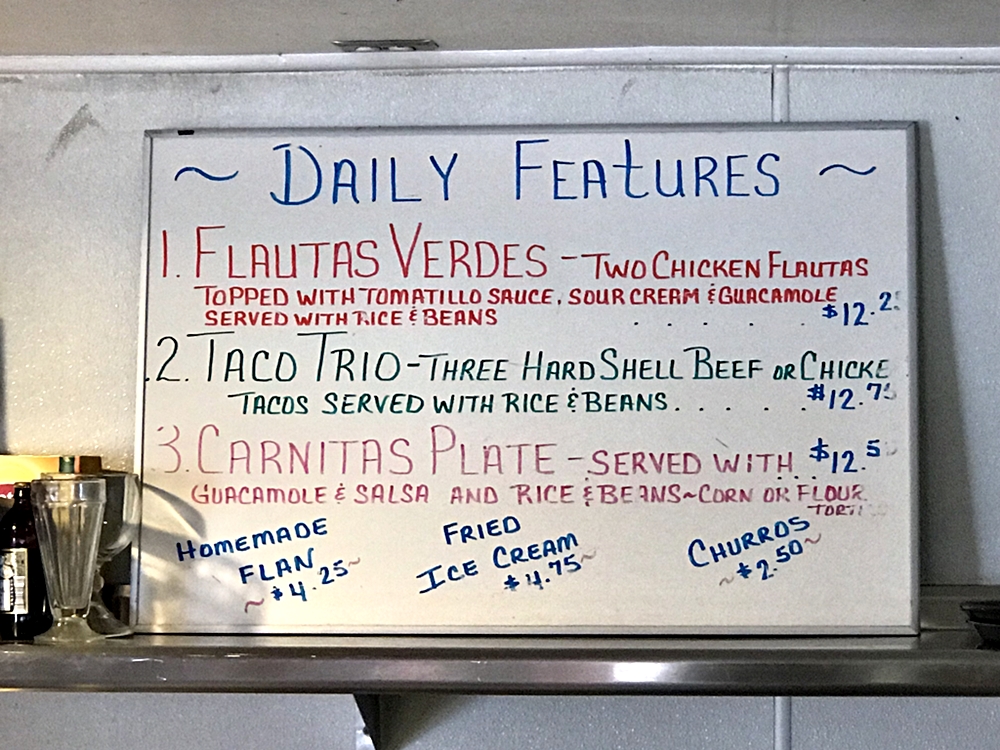 ~ DAILY FEATURES ~
1. FLAUTAS VERDES - TWO CHICKEN FLAUTAS
TOPPED WITH TOMATILLO SAUCE, SOUR CREAM & GUACAMOLE
SERVED WITH RICE & BEANS . . . . . $12.2
2. TACO TRIO - THREE HARD SHELL BEEF OR CHICKE
TACOS SERVED WITH RICE & BEANS. . . . . $12.75
3. CARNITAS PLATE - SERVED WITH $12.5
GUACAMOLE & SALSA AND RICE & BEANS ~ CORN OR FLOUR
TORTI
HOMEMADE
FLAN
~ $4.25 ~
FRIED
ICE CREAM
$4.75 ~
CHURROS
~ $2.50 ~